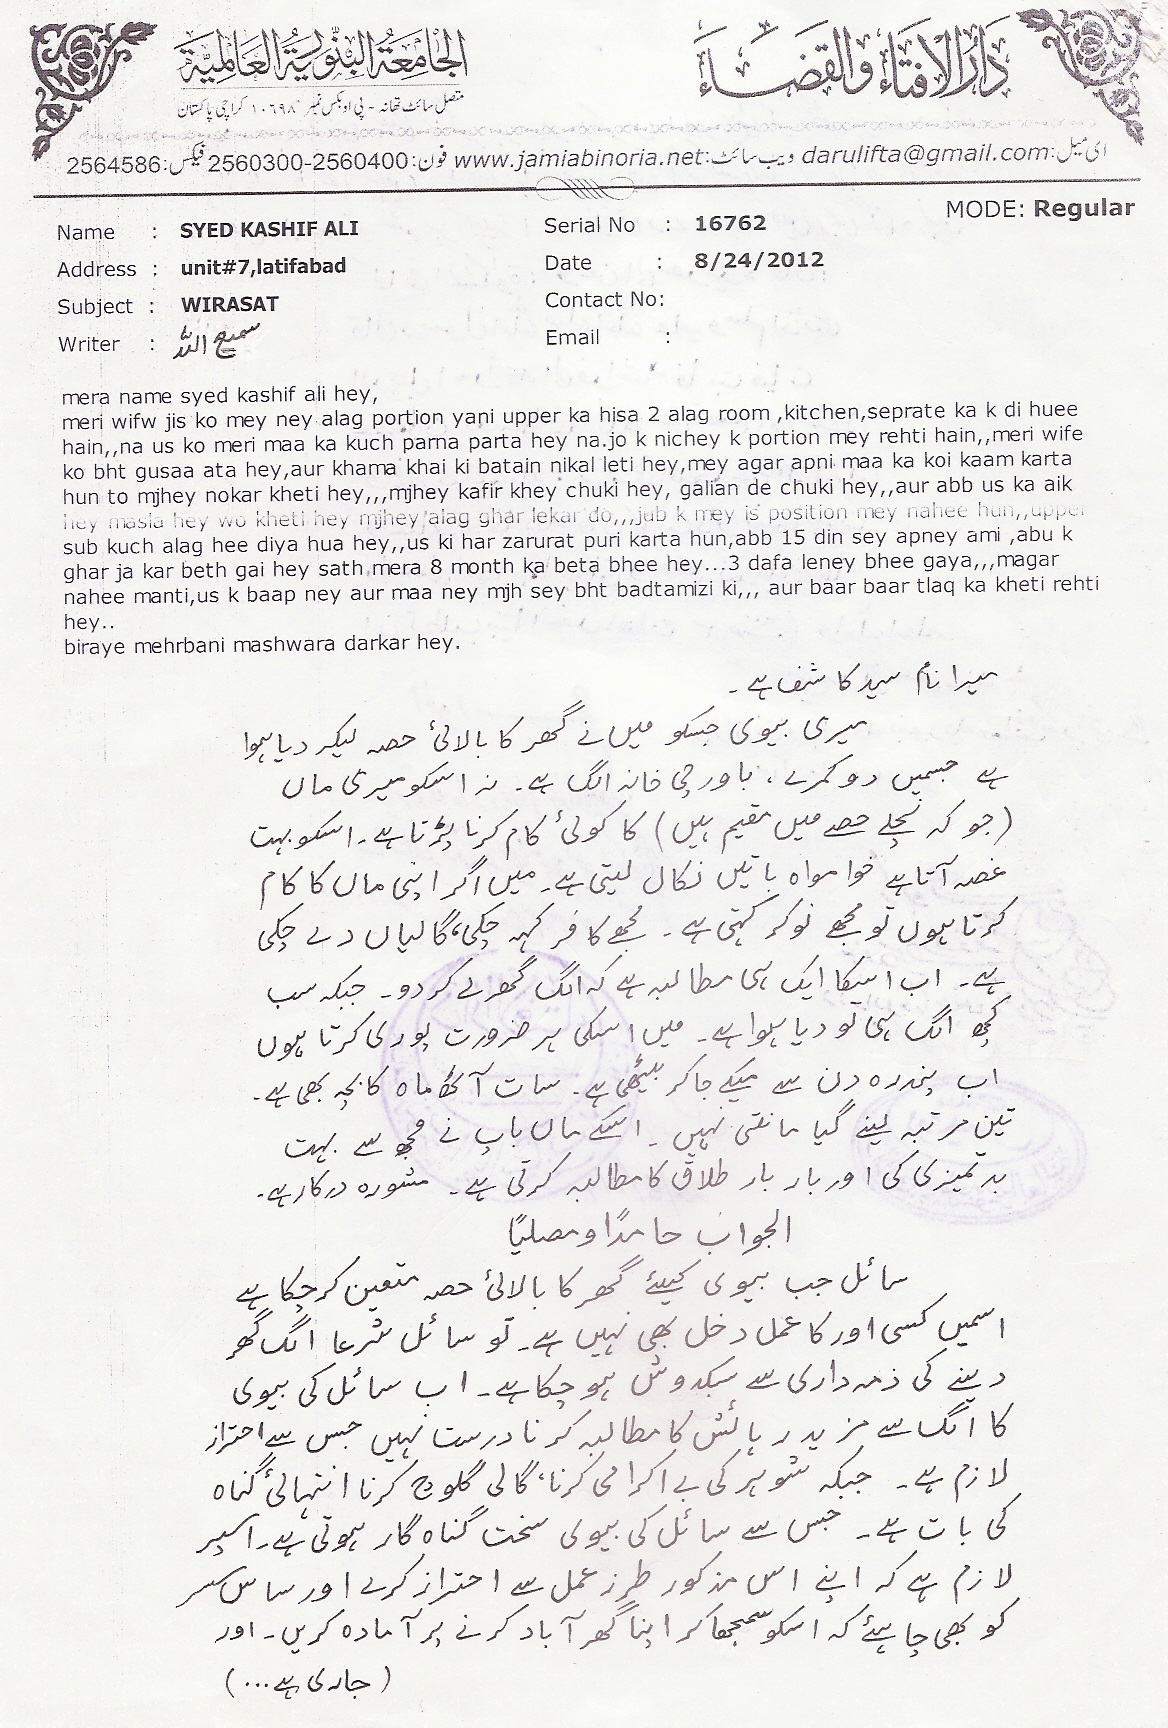 دارالافتاء والقضاء
الجامعۃ البنوریۃ العالمیۃ
متصل سائٹ تھانہ - پی او بکس نمبر ۱۰۶۹۸ کراچی پاکستان
ای میل:darulifta@gmail.com ویب سائٹ:www.jamiabinoria.net فون:2560300-2560400 فیکس:2564586
MODE: Regular
Name : SYED KASHIF ALI
Serial No : 16762
Address : unit#7,latifabad
Date : 8/24/2012
Subject : WIRASAT
Contact No:
Writer : سمیع اللہ
Email :
mera name syed kashif ali hey,
meri wifw jis ko mey ney alag portion yani upper ka hisa 2 alag room ,kitchen,seprate ka k di huee
hain,,na us ko meri maa ka kuch parna parta hey na.jo k nichey k portion mey rehti hain,,meri wife
ko bht gusaa ata hey,aur khama khai ki batain nikal leti hey,mey agar apni maa ka koi kaam karta
hun to mjhey nokar kheti hey,,,mjhey kafir khey chuki hey, galian de chuki hey,,aur abb us ka aik
hey masla hey wo kheti hey mjhey alag ghar lekar do,,,jub k mey is position mey nahee hun,,upper
sub kuch alag hee diya hua hey,,us ki har zarurat puri karta hun,abb 15 din sey apney ami ,abu k
ghar ja kar beth gai hey sath mera 8 month ka beta bhee hey...3 dafa leney bhee gaya,,,magar
nahee manti,us k baap ney aur maa ney mjh sey bht badtamizi ki,,, aur baar baar tlaq ka kheti rehti
hey..
biraye mehrbani mashwara darkar hey.
میرا نام سید کاشف ہے۔
میری بیوی جسکو میں نے گھر کا بالائی حصہ لیکر دیا ہوا
ہے جسمیں دو کمرے، باورچی خانہ الگ ہے۔ نہ اسکو میری ماں
(جو کہ نچلے حصے میں مقیم ہیں) کا کوئی کام کرنا پڑتا ہے۔ اسکو بہت
غصہ آتا ہے خوامواہ باتیں نکال لیتی ہے۔ میں اگر اپنی ماں کا کام
کرتا ہوں تو مجھے نوکر کہتی ہے۔ مجھے کافر کہہ چکی، گالیاں دے چکی
ہے۔ اب اسکا ایک ہی مطالبہ ہے کہ الگ گھر لے کر دو۔ جبکہ سب
کچھ الگ ہی تو دیا ہوا ہے۔ میں اسکی ہر ضرورت پوری کرتا ہوں
اب پندرہ دن سے میکے جا کر بیٹھی ہے۔ سات آٹھ ماہ کا بچہ بھی ہے۔
تین مرتبہ لینے گیا مانتی نہیں۔ اسکے ماں باپ نے مجھ سے بہت
بدتمیزی کی اور بار بار طلاق کا مطالبہ کرتی ہے۔ مشورہ درکار ہے۔
الجواب حامدًا و مصلیًا
سائل جب بیوی کیلئے گھر کا بالائی حصہ متعین کر چکا ہے
اسمیں کسی اور کا عمل دخل بھی نہیں ہے۔ تو سائل شرعا الگ گھر
دینے کی ذمہ داری سے سبکدوش ہو چکا ہے۔ اب سائل کی بیوی
کا الگ سے مزید رہائش کا مطالبہ کرنا درست نہیں جس سے احتراز
لازم ہے۔ جبکہ شوہر کی بے اکرامی کرنا، گالی گلوچ کرنا انتہائی گناہ
کی بات ہے۔ جس سے سائل کی بیوی سخت گناہ گار ہوتی ہے۔ اسپر
لازم ہے کہ اپنے اس مذکور طرز عمل سے احتراز کرے اور ساس سسر
کو بھی چاہئے کہ اسکو سمجھا کر اپنا گھر آباد کرنے پر آمادہ کریں۔ اور
(جاری ہے...)